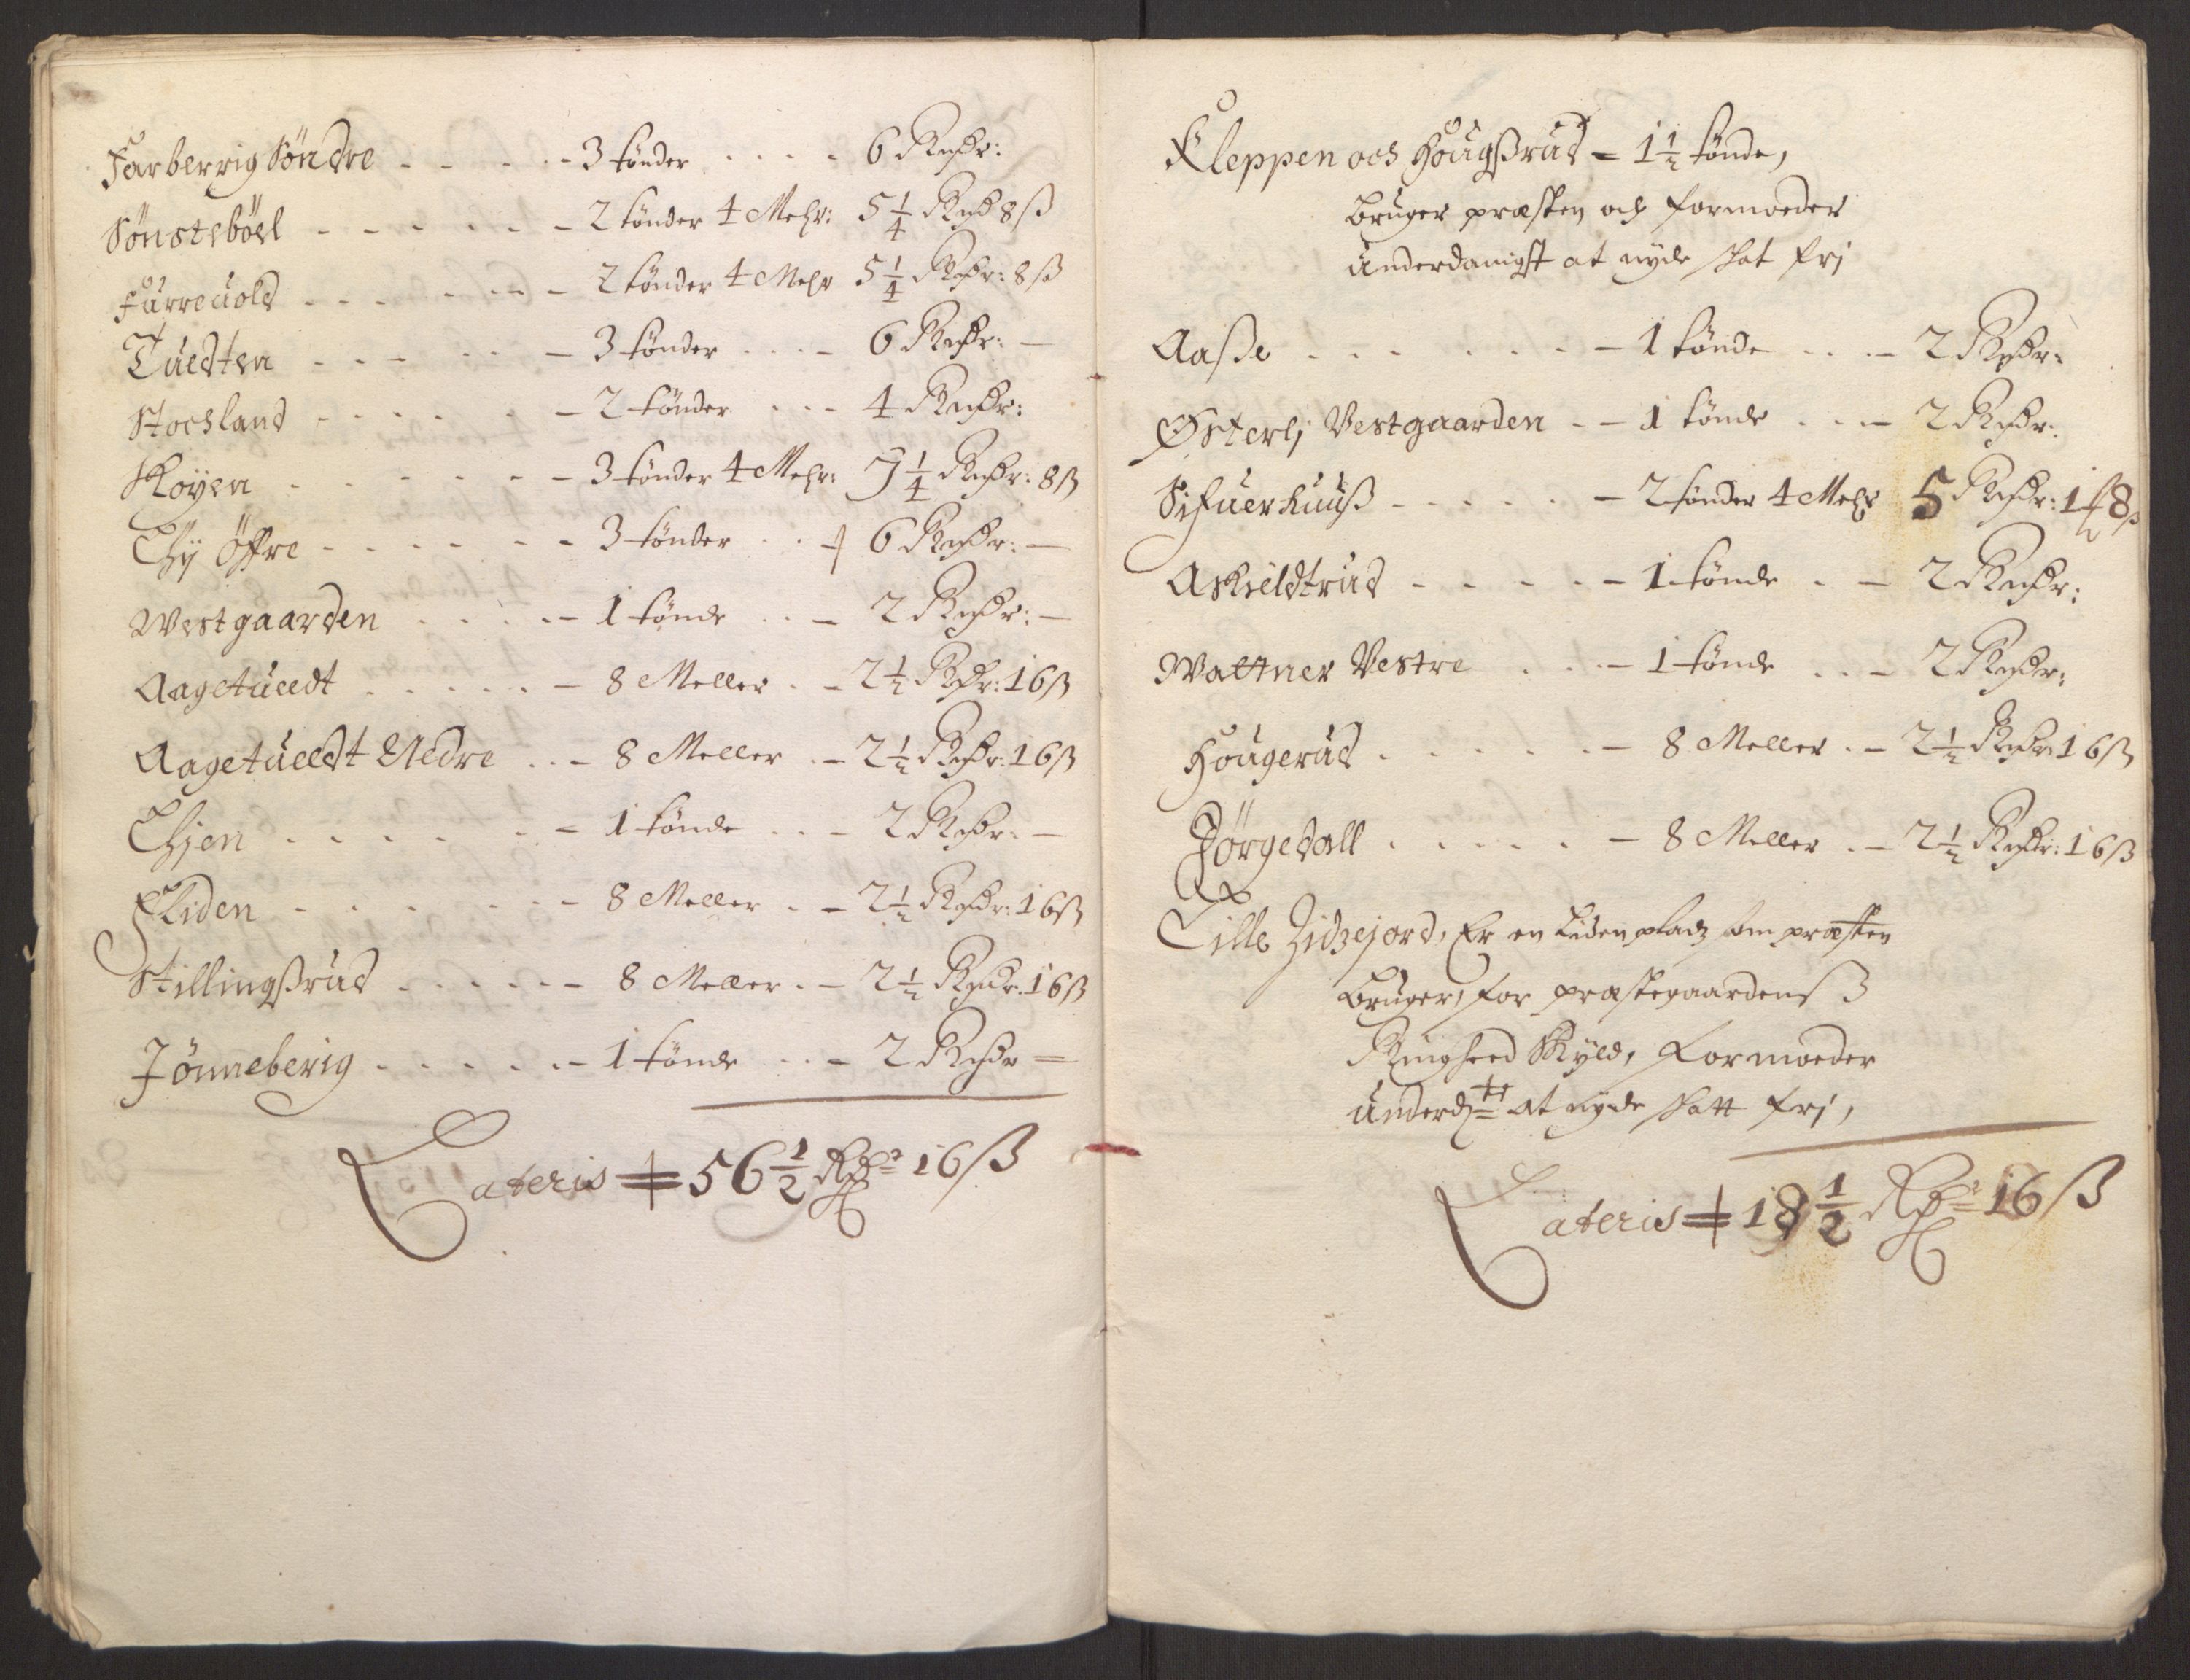 Farberrig Söndre - - - - - 3 tönder - - - - 6 Rixdr:
Sönsteböel - - - - - - 2 tönder 4 Mehr: 5 1/4 Rixd 8 ß
Furreuold - - - - - - 2 tönder 4 Mehr 5 1/4 Rixdr: 8 ß
Tuedten - - - - - - 3 tönder - - - - 6 Rixdr: -
Stochland - - - - - - 2 tönder - - - 4 Rixdr:
Skoyen - - - - - - 3 tönder 4 Mehr: 7 1/4 Rixdr: 8 ß
Lhÿ Öffre - - - - - - 3 tönder - - - 6 Rixdr: -
Westgaarden - - - - - 1 tönde - - - 2 Rixdr: -
Aagetuedt - - - - - - 8 Meller - - 2 1/2 Rixdr: 16 ß
Aagetuedt Nedre - - - 8 Meller - - 2 1/2 Rixdr: 16 ß
Lhjen - - - - - - 1 tönde - - - 2 Rixdr: -
Fliden - - - - - - 8 Meller - - 2 1/2 Rixdr: 16 ß
Stillingßrud - - - - - - 8 Meller - - 2 1/2 Rixdr: 16 ß
Jönneberig - - - - - 1 tönde - - - 2 Rixdr =
Lateris = 56 1/2 Rdr 16 ß
Kleppen och Hougßrud - 1 1/2 tönde,
bruger præsten och formoeder
underdanigst at nyde skat frj
Aaße - - - - - - 1 tönde - - - 2 Rixdr:
Østerlj Vestgaarden - - 1 tönde - - - 2 Rixdr:
Sifuerhuuß - - - - - - 2 tönder 4 Mehr 5 Rixdr: 18 ß
Askieldtrud - - - - - 1 tönde - - 2 Rixdr:
Wattner Vestre - - - 1 tönde - - - 2 Rixdr:
Hougerud - - - - - - 8 Meller - - 2 1/2 Rixdr 16 ß
Jörgedall - - - - - - 8 Meller - - 2 1/2 Rixdr: 16 ß
Lille Zidzejord, Er en liden pladz som præsten
bruger, for præstegaardenß
Ringheed Skyld, Formoeder
underdst at nyde skatt frj,
Lateris = 18 1/2 Rdr 16 ß